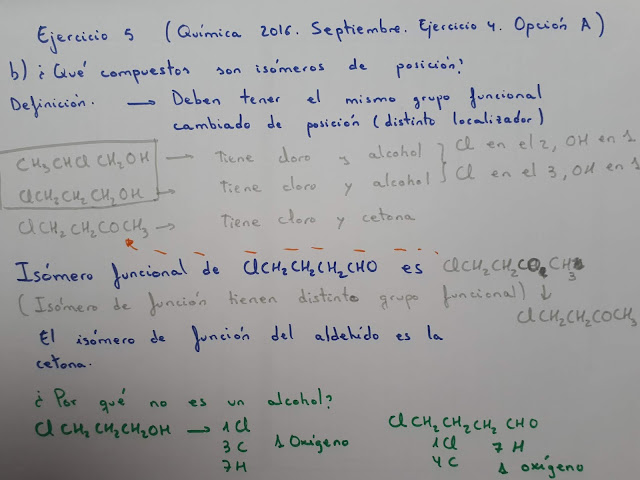 Ejercicio 5 (Química 2016. Septiembre. Ejercicio 4. Opción A)
b) ¿Qué compuestos son isómeros de posición?
Definición. → Deben tener el mismo grupo funcional
cambiado de posición (distinto localizador)
CH₃CHClCH₂OH → Tiene cloro y alcohol } Cl en el 2, OH en 1
ClCH₂CH₂CH₂OH → Tiene cloro y alcohol } Cl en el 3, OH en 1
ClCH₂CH₂COCH₃ → Tiene cloro y cetona
Isómero funcional de ClCH₂CH₂CH₂CHO es ClCH₂CH₂CO CH₃
(Isómero de función tienen distinto grupo funcional) ↓
ClCH₂CH₂COCH₃
El isómero de función del aldehído es la
cetona.
¿Por qué no es un alcohol?
ClCH₂CH₂CH₂OH → 1Cl
3C 1 Oxígeno
7H
ClCH₂CH₂CH₂CHO
1Cl 7H
4C 1 oxígeno